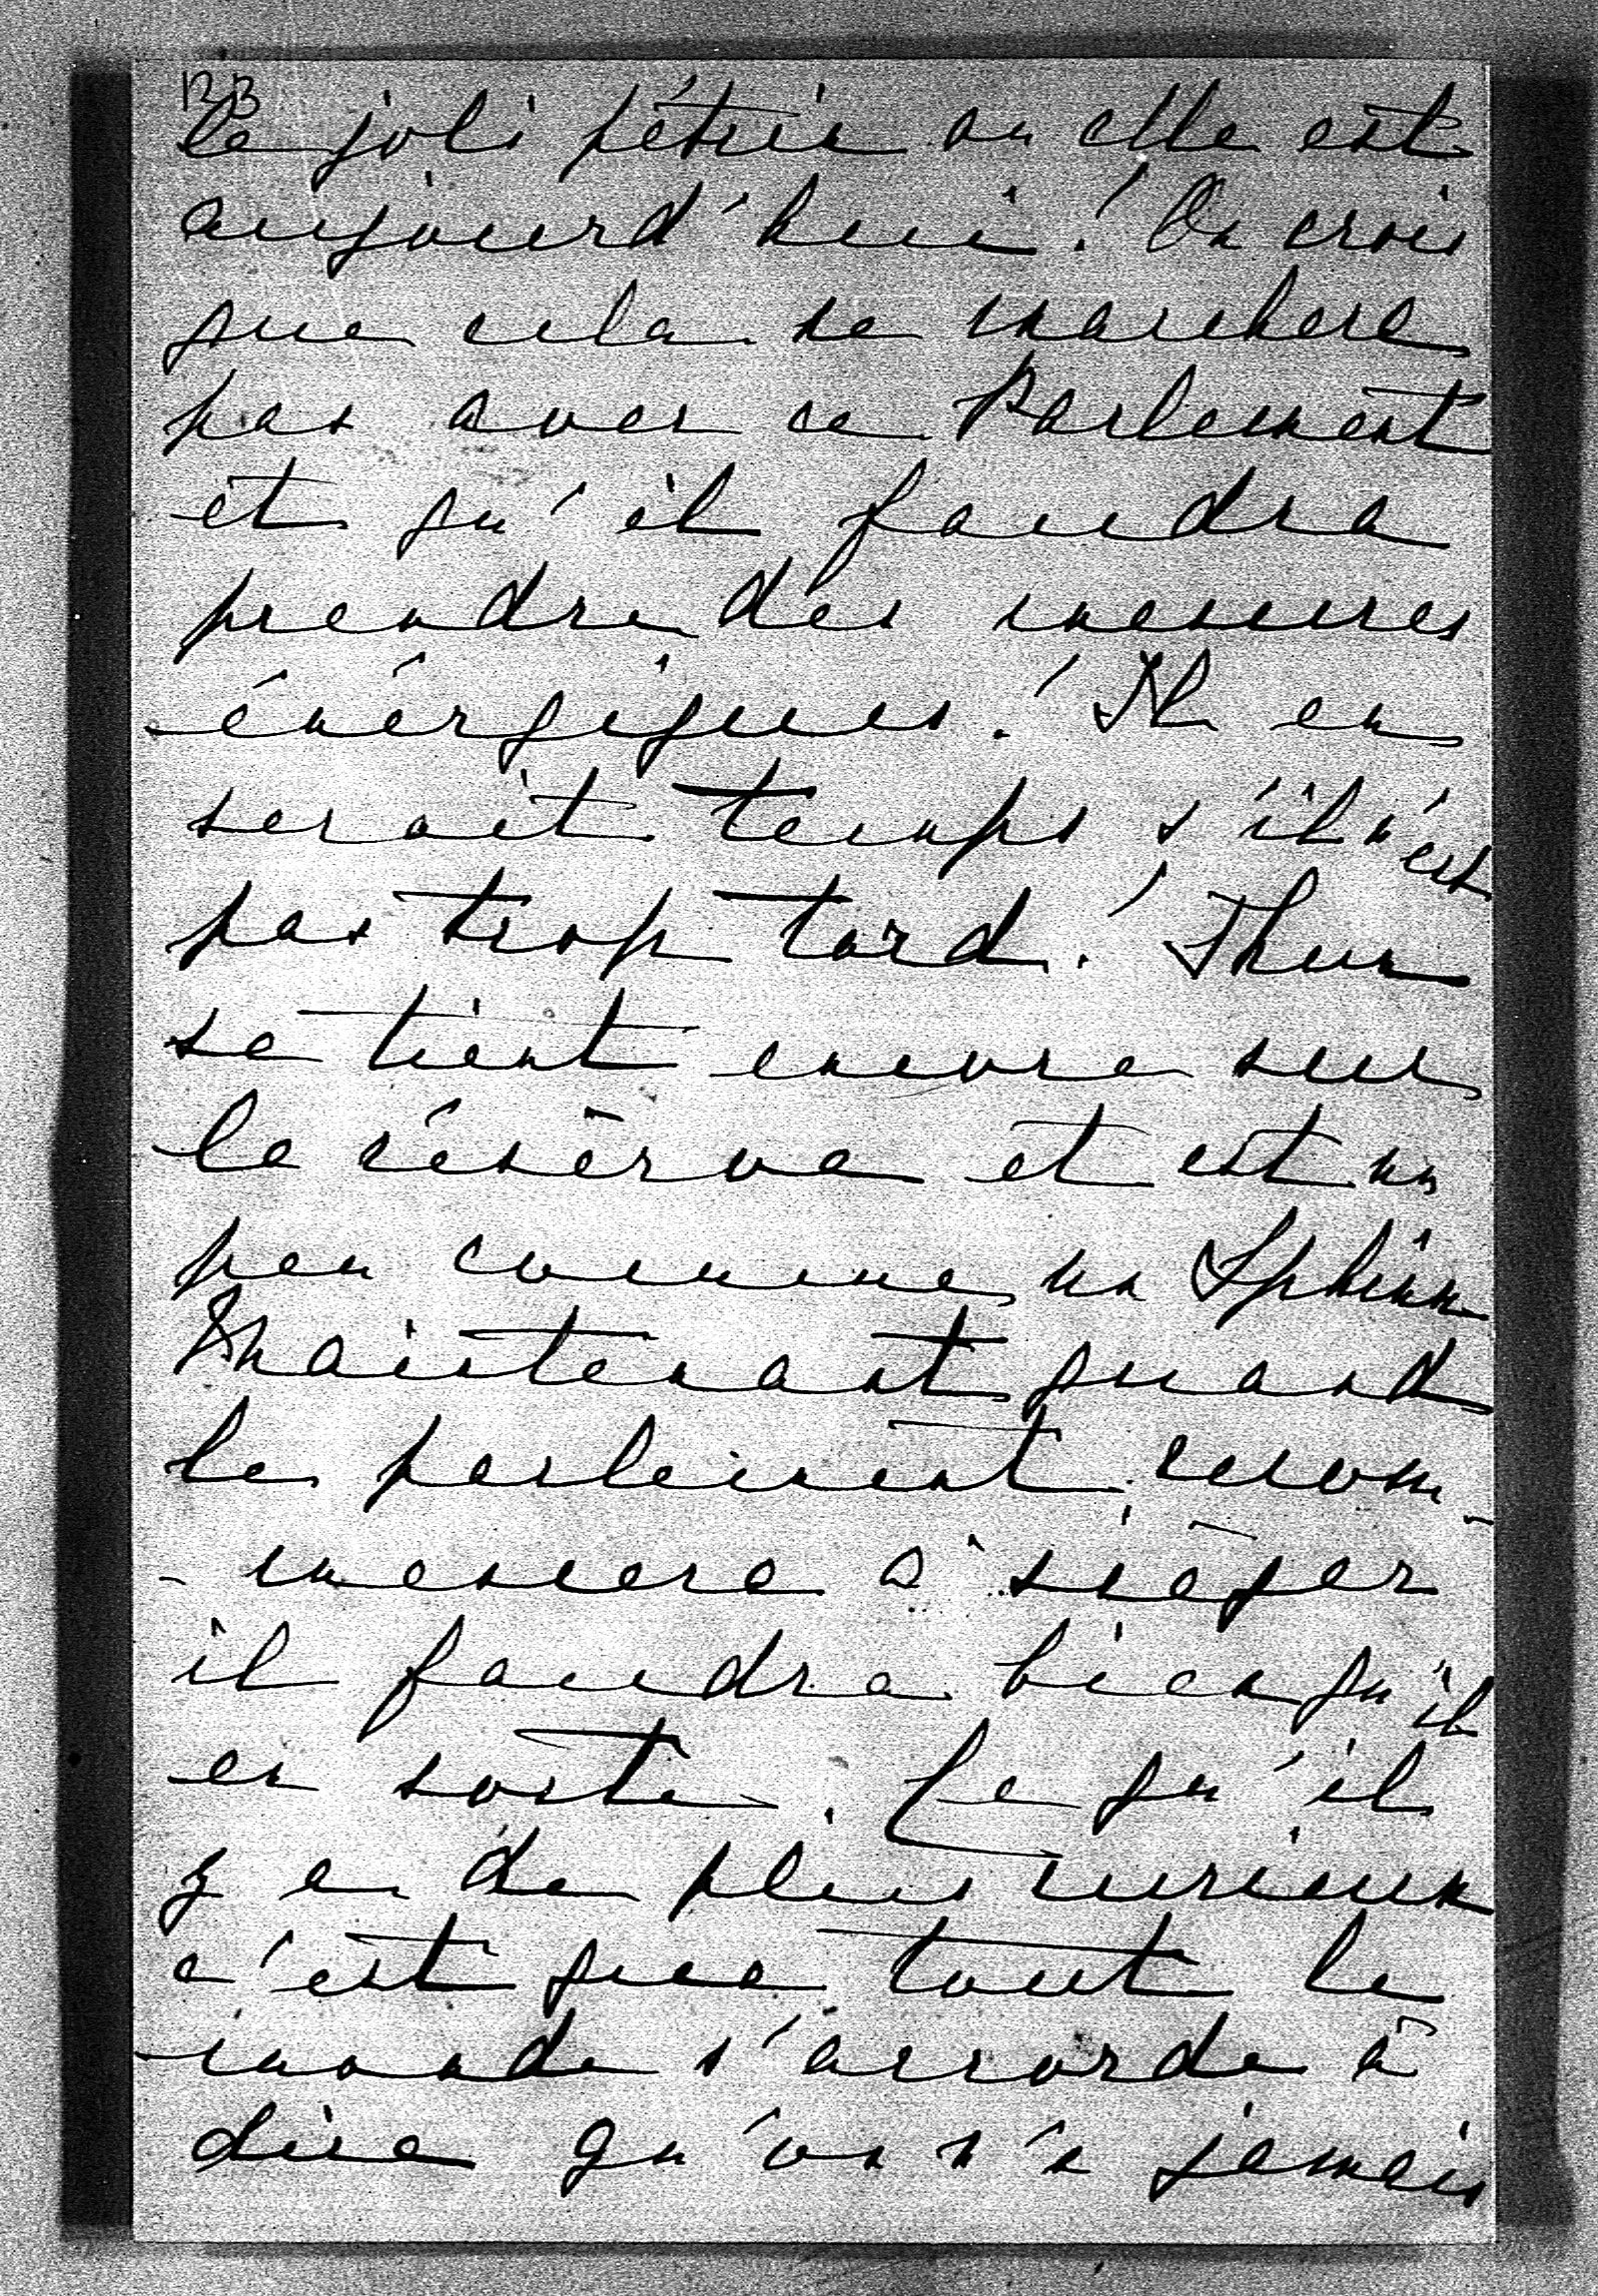 BB
le joli pétrin ou elle est
aujourd'hui! On crois
que cela ne marchera
pas avec ce Parlement
et qu'il faudra
prendre des mesures
énérgiques! Il en
serait temps s'il n'est
pas trop tard! Thun
se tient encore sur
la réserve et est un
peu comme un Sphinx
Maintenant quand
le parlement recom-
- mencera à sieger
il faudra bien qu'il
en sorte. Ce qu'il
y a de plus curieux
c'est que tout le
monde s'accorde à
dire qu'on n'a jamais